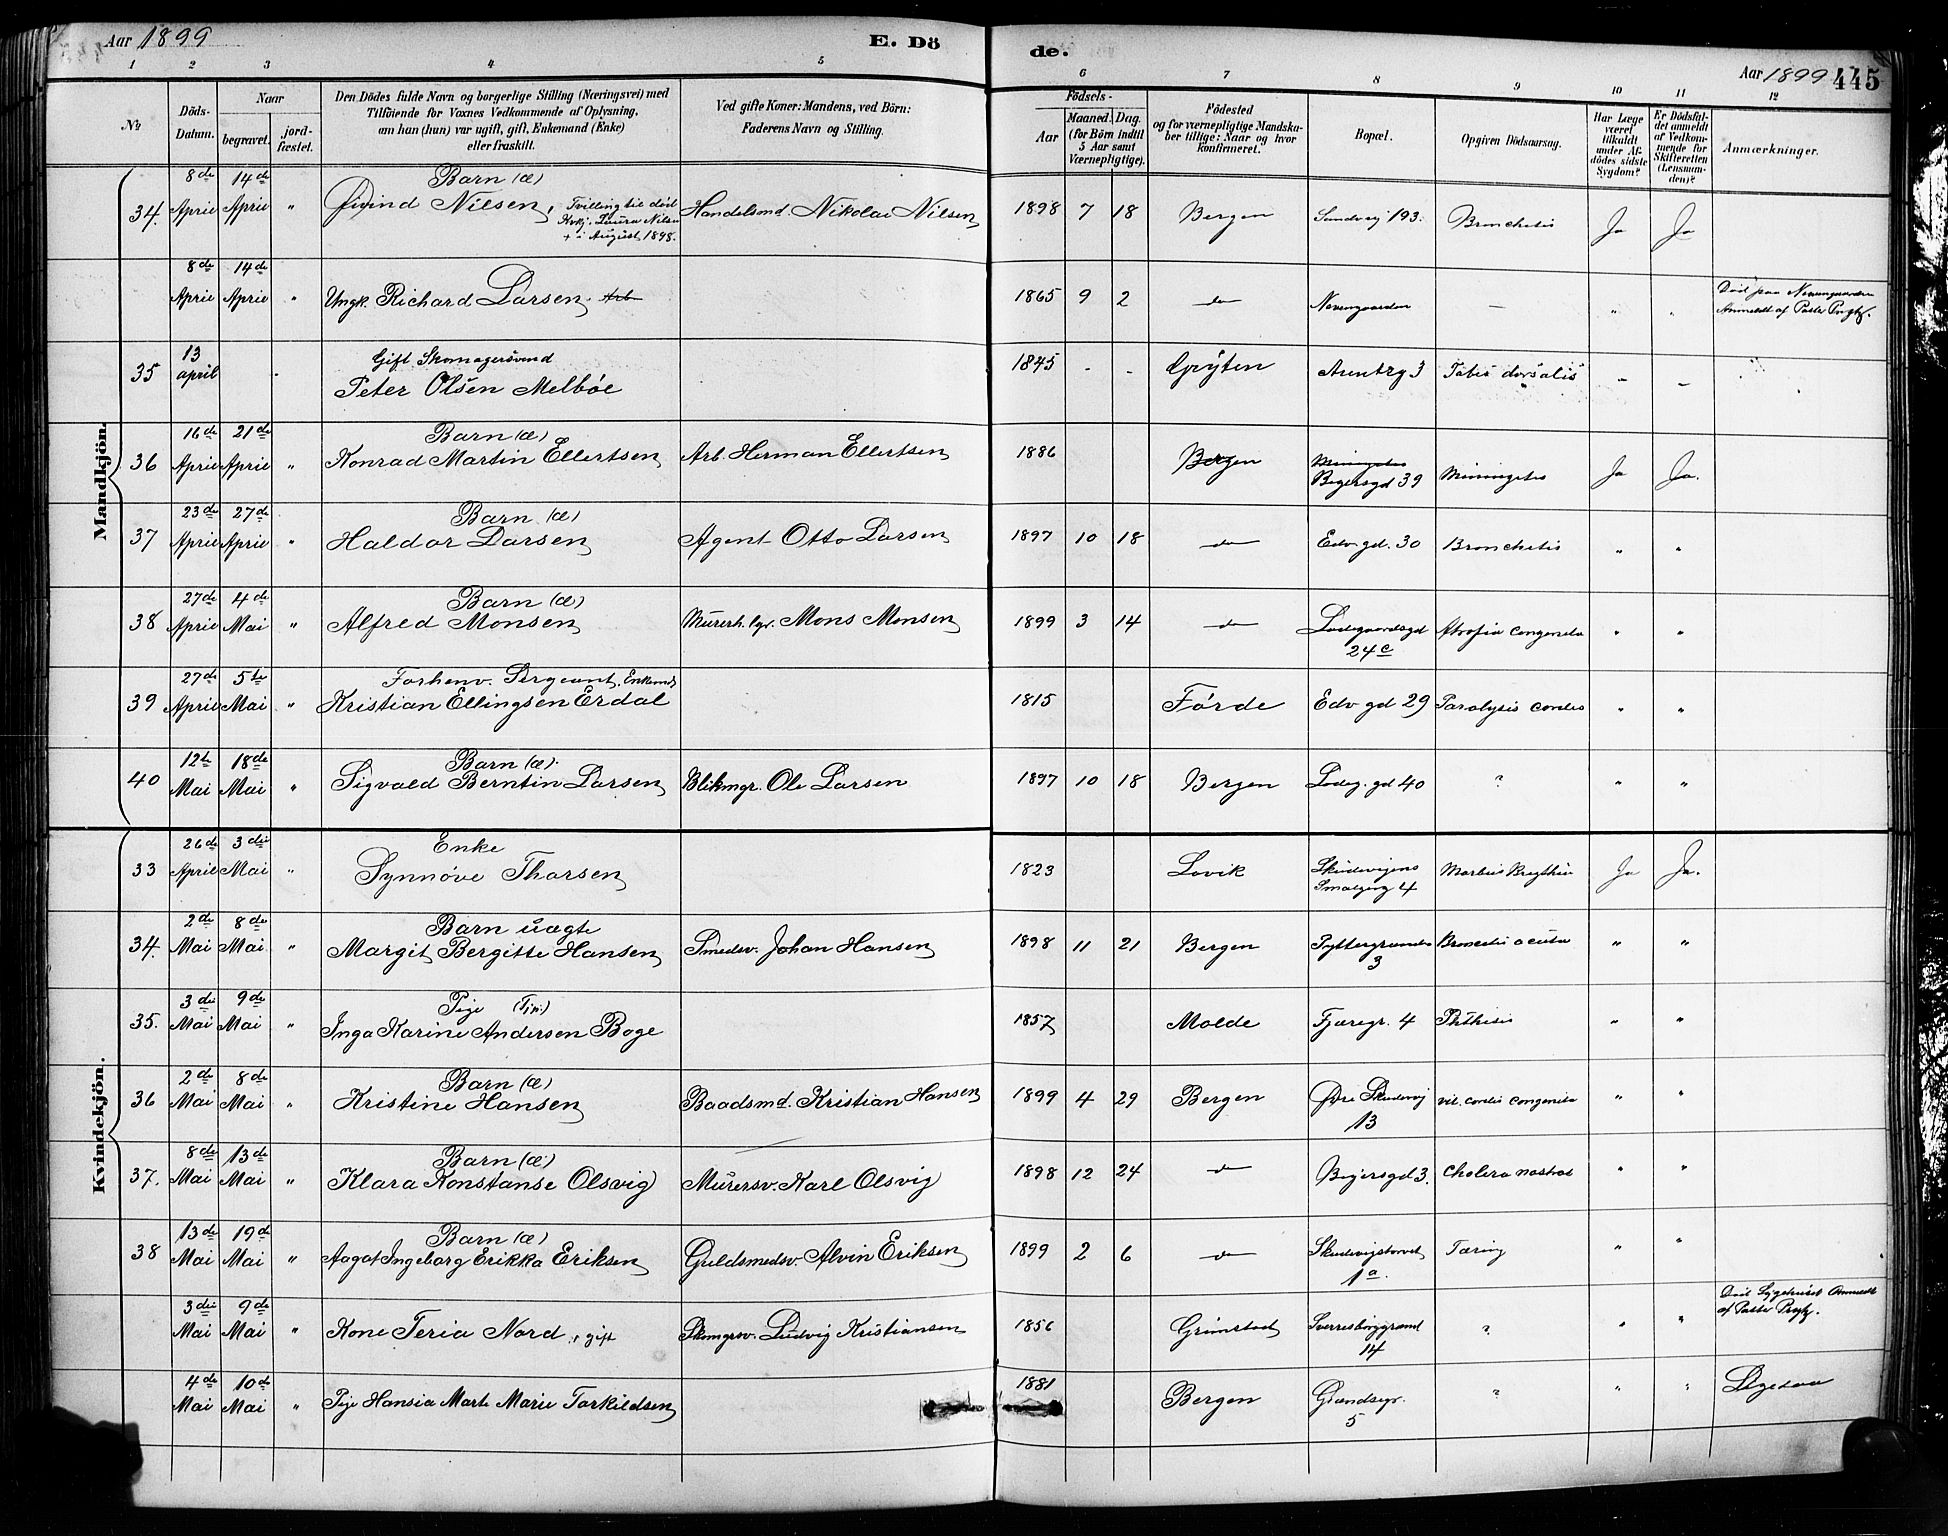 Aar 1899
E. Dö
de.
Aar 1899
445
1 2 3 4 5 6 7 8 9 10 11 12
№
Döds-Datum.
Naar
begravet.
jord-fæstet.
Den Dödes fulde Navn og borgerlige Stilling (Næringsvei) med
Tilföiende for Voxnes Vedkommende af Oplysning,
om han (hun) var ugift, gift, Enkemand (Enke)
eller fraskilt.
Ved gifte Koner: Mandens, ved Börn:
Faderens Navn og Stilling.
Födsels-
Aar
Maaned. Dag.
(for Börn indtil
5 Aar samt
Værnepligtige).
Födested
og for værnepligtige Mandska-
ber tillige: Naar og hvor
konfirmeret.
Bopæl.
Opgiven Dödsaarsag.
Har Læge
været
tilkaldt
under Af-
dödes sidste
Sygdom?
Er Dödsfal-
det anmeldt
af Vedkom-
mende for
Skifteretten
(Lensman-
den)?
Anmærkninger.
Mandkjön.
34. 8de April 14de April " Barn (Æ) Øivind Nilsen, Tvilling til död Kvkj. Laura Nilsen + i August 1898. Handelsmd. Nikolai Nilsen 1898 7 18 Bergen Sandvej 193. Bronchetis Ja Ja
8de April 14de April " Ungk. Richard Larsen. Arb 1865 9 2 do Nevengaarden — " " Död paa Nevengaarden Anmeldt af Pastor
35 13 april Gift Skomagersvend Peter Olsen Melböe 1845 - - Gryten Arentzg 3 Tabes dorsalis — —
36 16de April 21de April " Barn (Æ) Konrad Martin Ellertsen Arb. Herman Ellertsen 1886 Bergen Meningetis Beyersgd 39 Meningetis Ja Ja.
37 23de April 27de April " Barn (Æ) Haldor Larsen Agent Otto Larsen 1897 10 18 do Edv. gd. 30 Bronchetis " "
38 27de April 4de Mai " Barn (Æ) Alfred Monsen Murerh.lgr. Mons Monsen 1899 3 14 do Ladegaardsgd 24c Atrofia congenita " "
39 27de April 5te Mai " Forhenv. Sergeant, Enkemd Kristian Ellingsen Erdal 1815 Förde Edv gd 29 Paralysis cordis " "
40 12te Mai 18de Mai " Barn (Æ). Sigvald Berntin Larsen Blikmgr. Ole Larsen 1897 10 18 Bergen Ladeg. gd 40 ? " "
Kvindekjön.
33 26de April 3die Mai " Enke Synnöve Thorsen 1823 Lavik Skudevigens Smalgang 4 Morbus Brigthii Ja Ja.
34. 2de Mai 8de Mai " Barn uægte Margit Bergitte Hansen Smedsv. Johan Hansen 1898 11 21 Bergen Pyttergrænden 3 Broncetis acuta " "
35. 3die Mai 9de Mai " Pige (Tjn.) Inga Karine Andersen Boge 1857 Molde Fjæregr. 4 Phthisis " "
36 2de Mai 8de Mai " Barn (Æ) Kristine Hansen Baadsmd. Kristian Hansen 1899 4 29 Bergen Øvre Skudevig 13 vit. cordis congenita " "
37. 8de Mai 13de Mai " Barn (Æ) Klara Konstanse Olsvig Murersv. Karl Olsvig 1898 12 24 do Beyersgd 3. Cholera nostras " "
38 13de Mai 19de Mai " Barn (Æ) Aagot Ingeborg Erikka Eriksen Guldsmedsv. Alvin Eriksen 1899 2 6 do Skudevigstorvet 1a. Tæring " "
3die Mai 9de Mai " Kone Teria Nord, gift Skomgrsv. Ludvig Kristiansen 1856 Grimstad Sverresborggrænd 14 ? " " Död Sygehuset Anmeldt af Pastor
4de Mai 10de Mai " Pige Hansia Marte Marie Torkildsen 1881 Bergen Grændsegr. 5 ? " " Ligesaa